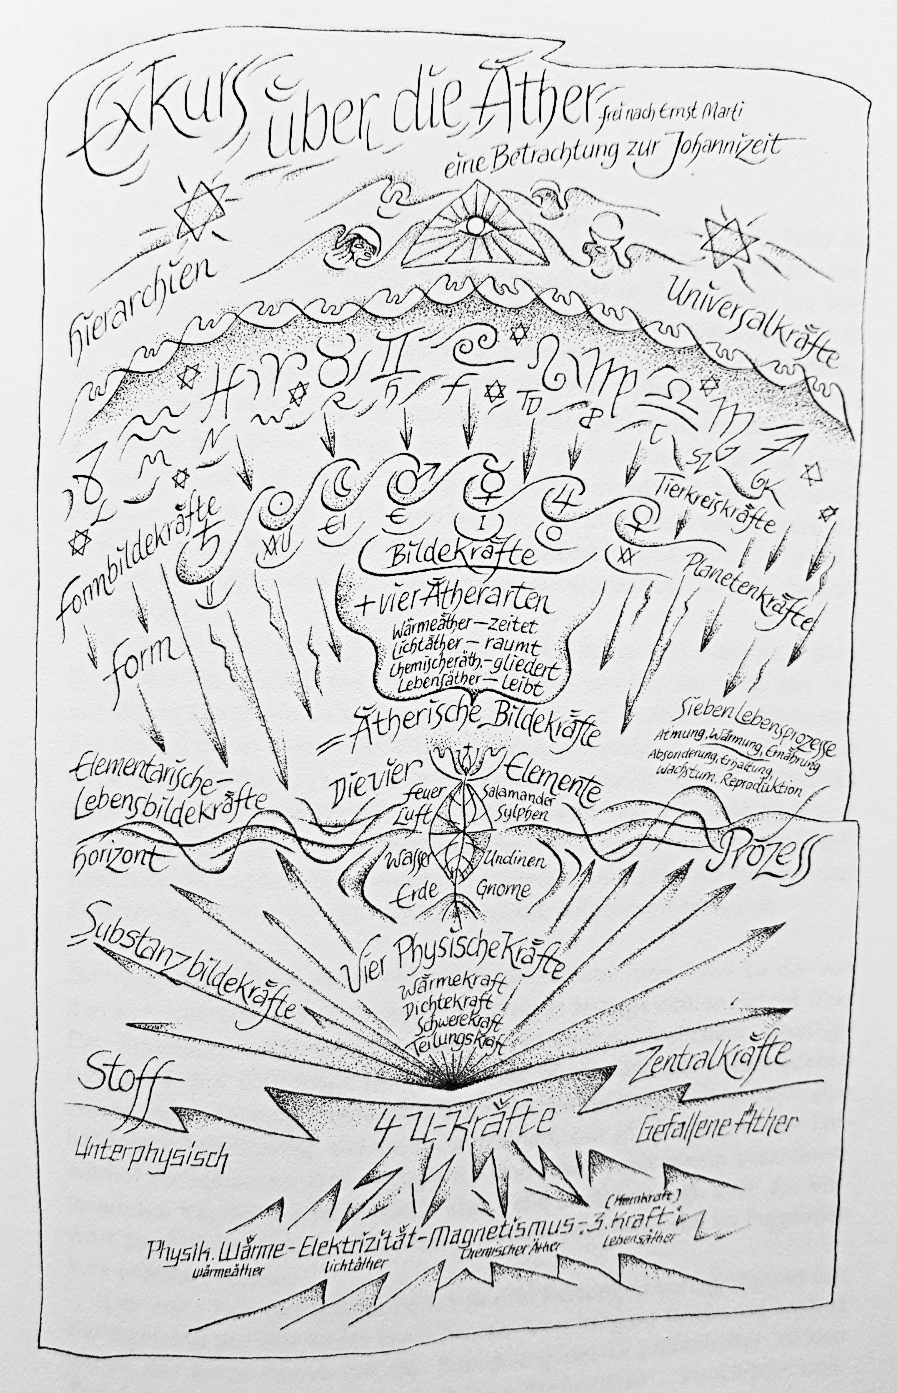 Exkurs über die Äther frei nach Ernst Marti
eine Betrachtung zur Johannizeit
Hierarchien
Universalkräfte
Tierkreiskräfte
Formbildekräfte
Bildekräfte
Planetenkräfte
+ vier Ätherarten
Wärmeäther – zeitet
Lichtäther – raumt
Chemischeräth. – gliedert
Lebensäther – leibt
Form
Ätherische Bildekräfte
Sieben Lebensprozesse
Atmung, Wärmung, Ernährung
Absonderung, Erhaltung,
Wachstum, Reproduktion
Elementarische –
Lebensbildekräfte
Die vier Elemente
Feuer Salamander
Luft Sylphen
Horizont
Prozess
Wasser Undinen
Erde Gnome
Substanzbildekräfte
Vier Physische Kräfte
Wärmekraft
Dichtekraft
Schwerekraft
Teilungskraft
Stoff
Zentralkräfte
4 U-Kräfte
Gefallene Äther
Unterphysisch
(Kernkraft)
Physik. Wärme – Elektrizität – Magnetismus – 3. Kraft
Wärmeäther Lichtäther Chemischer Äther Lebensäther